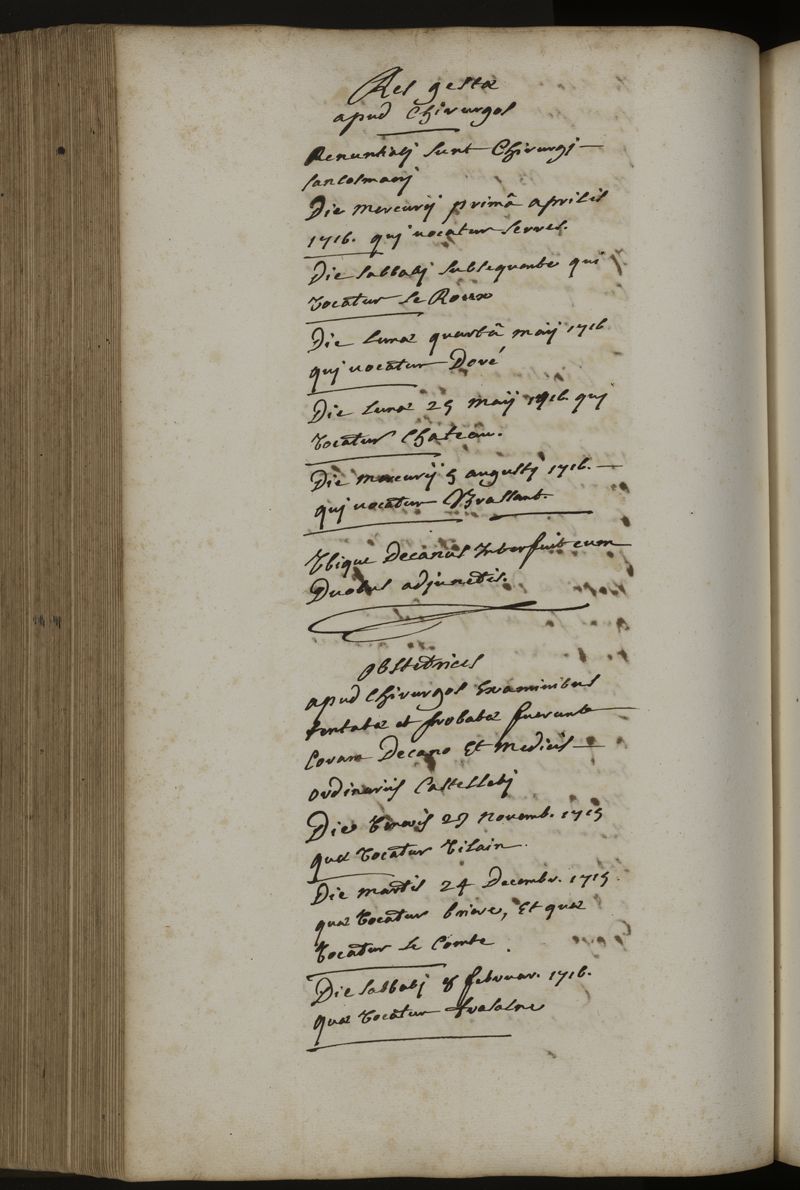 Res gestæ
apud Chirurgos
Renuntiatj sunt Chirurgj
sancosmaej
Die mercurij primâ aprilis
1716. quj vocatur Serres.
Die sabbatj subsequente qui
vocatur le Roux
Die lunæ quartâ maij 1716
quj vocatur Doré
Die lunæ 25 maij 1716. quj
vocatur Chateau.
Die mercurij 5 augustj 1716.
quj vocatur Brassant.
Ubique Decanus Interfuit cum
Duobus adjunctis.
obstetrices
apud Chirurgos Examinibus
tentatæ et probatæ fuerunt
Coram Decano Et medicis
ordinariis Castelletj
Die Veneris 29 novemb. 1715
quæ vocatur Vilain.
Die martis 24 Decembr. 1715.
quæ vocatur briere, Et quæ
vocatur le Comte.
Die sabbatj 8 februar. 1716.
quæ vocatur